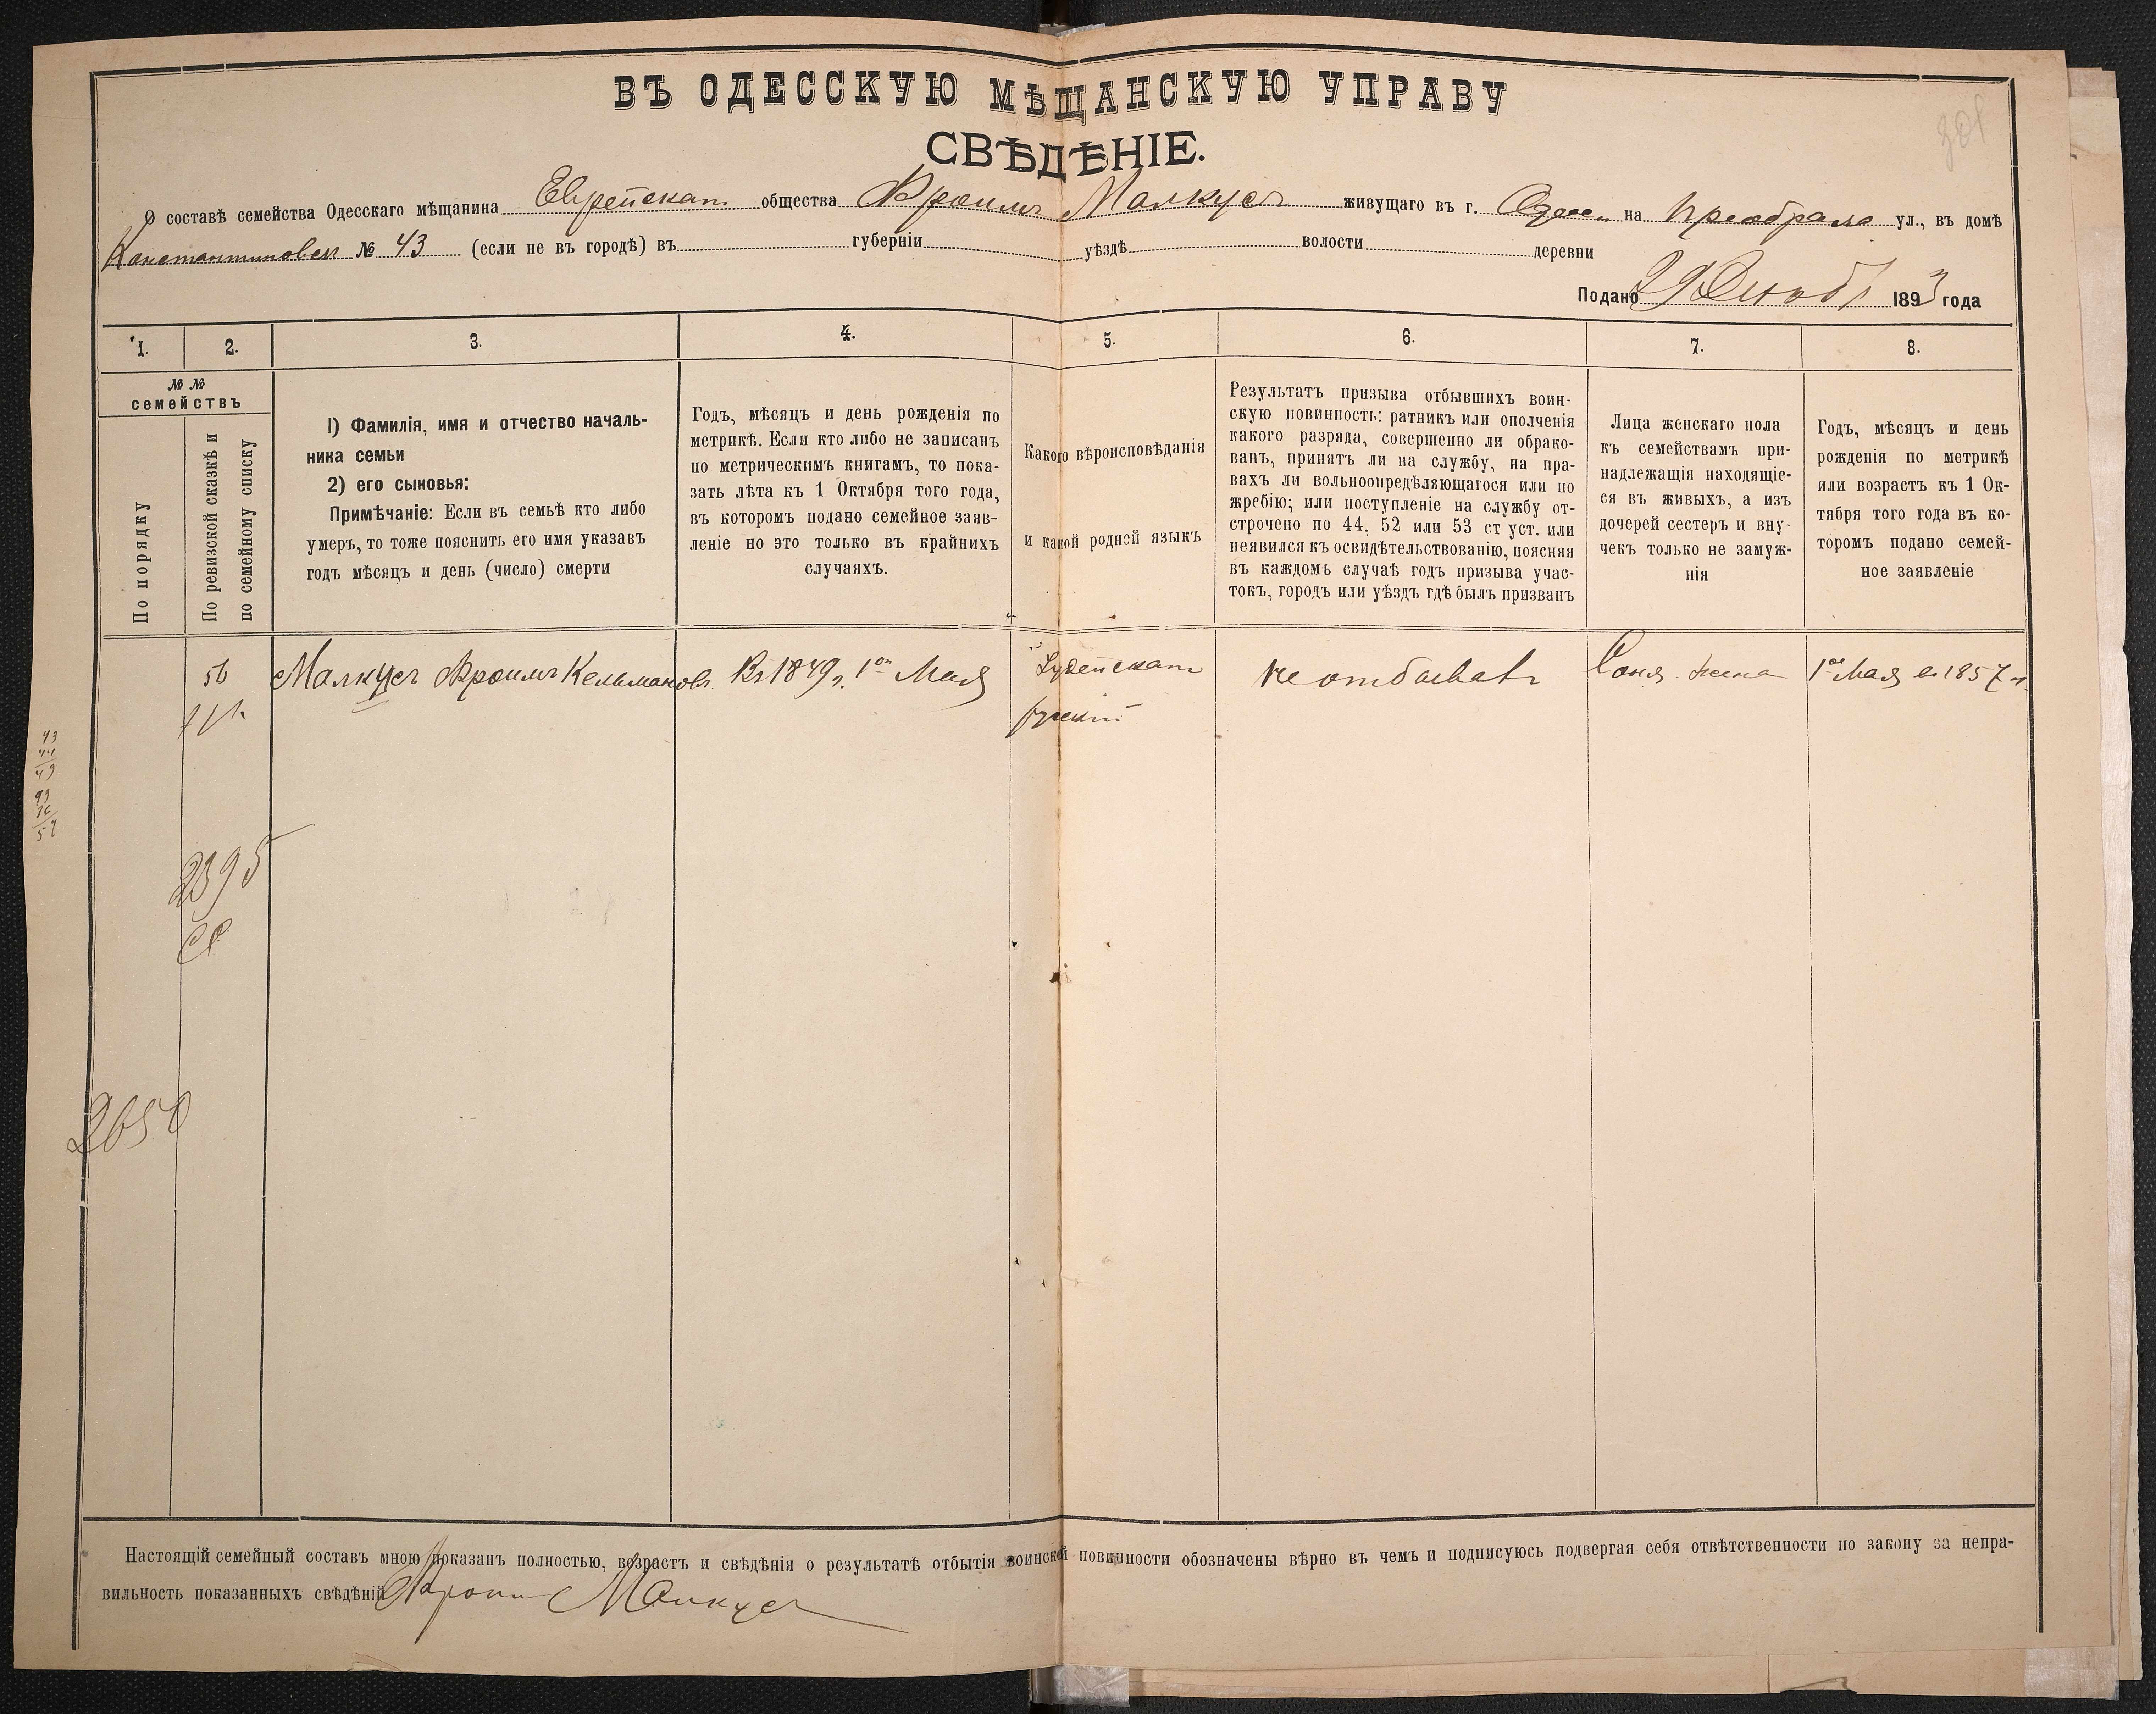 ВЪ ОДЕССКУЮ МѢЩАНСКУЮ УПРАВУ
СВѢДѢНІЕ.
О составѣ семейства Одесскаго мѣщанина Еврейскаго общества Фроимъ Малкусъ живущаго въ г. Одессѣ на Преображ ул., въ домѣ
Константиновск № 43 (если не въ городѣ) въ губерніи уѣздѣ волости деревни
Подано 29 Октяб 1893 года
1. 2. 3. 4. 5. 6. 7. 8.
№ №
семействъ
По порядку
По ревизской сказкѣ и
по семейному списку
1) Фамилія, имя и отчество началь-
ника семьи
2) его сыновья:
Примѣчаніе: Если въ семьѣ кто либо
умеръ, то тоже пояснить его имя указавъ
годъ мѣсяцъ и день (число) смерти
Годъ, мѣсяцъ и день рожденія по
метрикѣ. Если кто либо не записанъ
по метрическимъ книгамъ, то пока-
зать лѣта къ 1 Октября того года,
въ которомъ подано семейное заяв-
леніе но это только въ крайнихъ
случаяхъ.
Какого вѣроисповѣданія
и какой родной языкъ
Результатъ призыва отбывшихъ воин-
скую повинность: ратникъ или ополченія
какого разряда, совершенно ли обрако-
ванъ, принятъ ли на службу, на пра-
вахъ ли вольноопредѣляющагося или по
жребію; или поступленіе на службу от-
строчено по 44, 52 или 53 ст уст. или
неявился къ освидѣтельствованію, поясняя
въ каждомъ случаѣ годъ призыва учас-
токъ, городъ или уѣздъ гдѣ былъ призванъ
Лица женскаго пола
къ семействамъ при-
надлежащія находящіе-
ся въ живыхъ, а изъ
дочерей сестеръ и вну-
чекъ только не замуж-
нія
Годъ, мѣсяцъ и день
рожденія по метрикѣ
или возрастъ къ 1 Ок-
тября того года въ ко-
торомъ подано семей-
ное заявленіе
56 Малкусъ Фроимъ Кельманов. Въ 1849 г. 1го Мая Іудейскаго не отбывалъ Соня жена 1го Мая въ 1857 г.
рускій
43
44
49
93
36
57
2395
2650
301
Настоящій семейный составъ мною показанъ полностью, возрастъ и свѣдѣнія о результатѣ отбытія воинской повинности обозначены вѣрно въ чемъ и подписуюсь подвергая себя отвѣтственности по закону за непра-
вильность показанныхъ свѣдѣній Фроим Малкусъ